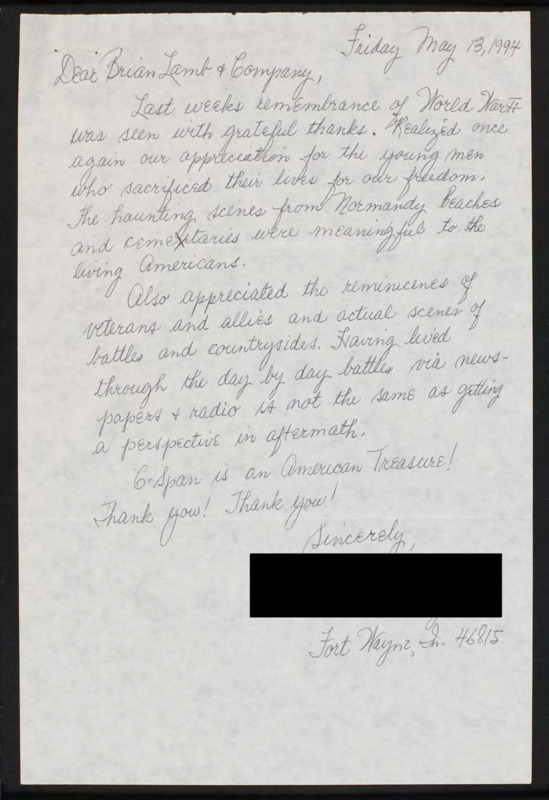 Friday May 13, 1994
Dear Brian Lamb & Company,
Last weeks remembrance of World War II
was seen with grateful thanks. Realized once
again our appreciation for the young men
who sacrificed their lives for our freedom.
The haunting scenes from Normandy beaches
and cemetaries were meaningful to the
living Americans.
Also appreciated the reminicenes of
veterans and allies and actual scenes of
battles and countrysides. Having lived
through the day by day battles via news-
papers & radio is not the same as getting
a perspective in aftermath.
C-Span is an American Treasure!
Thank you! Thank you!
Sincerely,
Fort Wayne, In. 46815